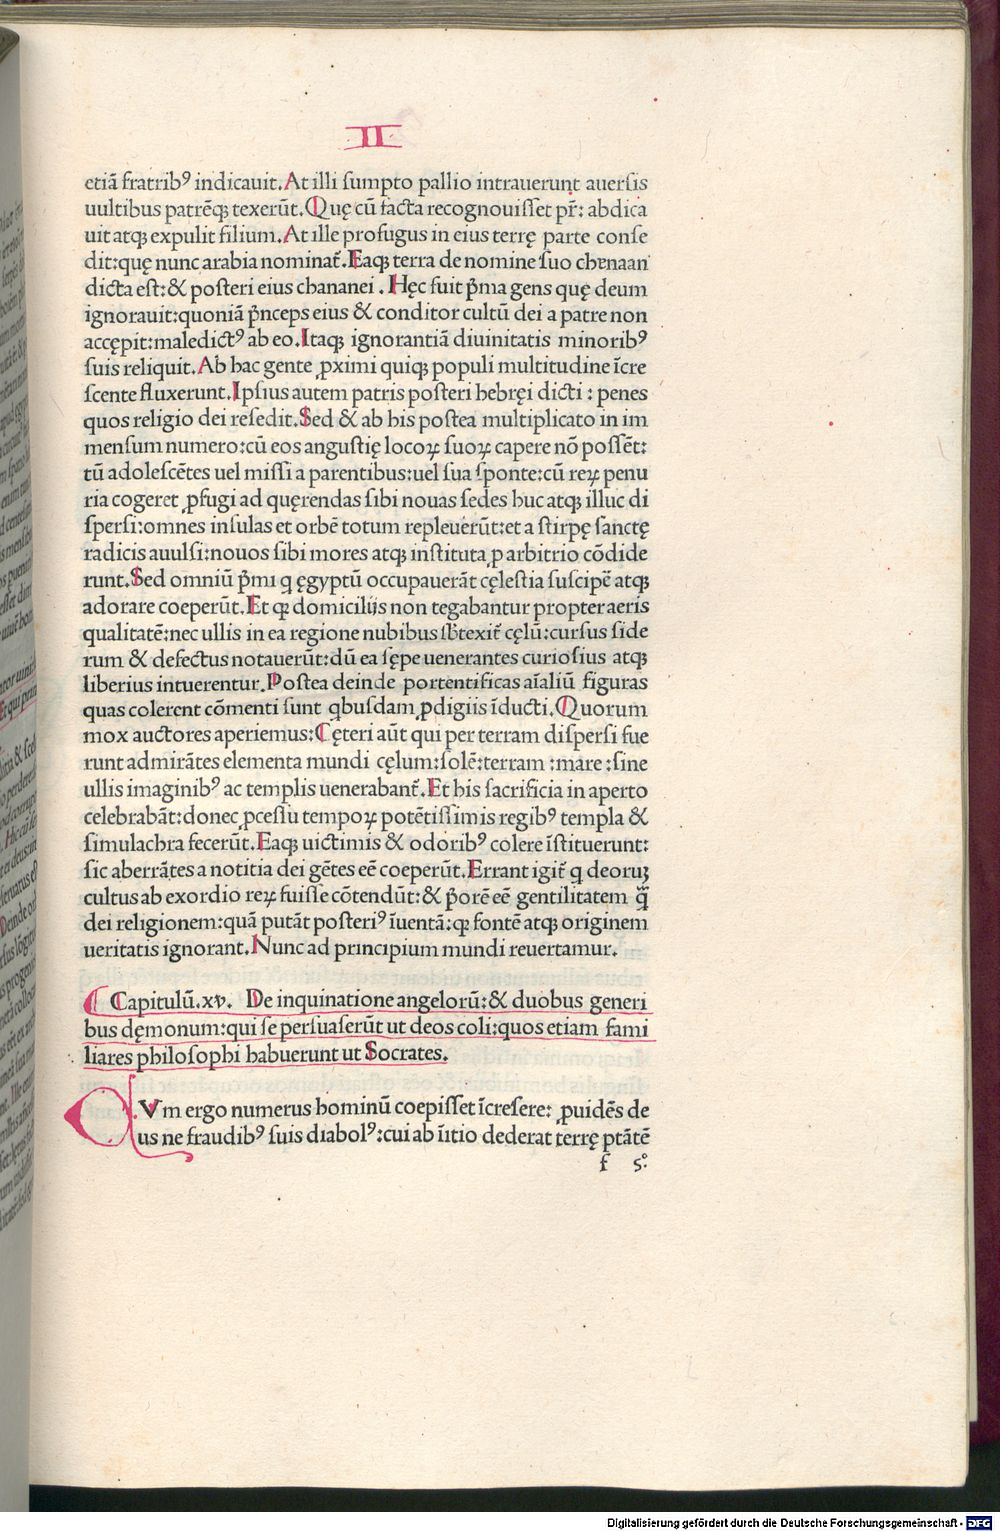 II
etiā fratribꝰ indicauit. At illi ſumpto pallio intrauerunt auerſis
uultibus patrēqꝫ texerūt. Quę cū facta recognouiſſet pr̄: abdica
uit atqꝫ expulit filium. At ille profugus in eius terrę parte conſe
dit: quę nunc arabia nominat̄. Eaqꝫ terra de nomine ſuo chenaan
dicta eſt: & poſteri eius chananei. Hęc fuit p̄ma gens quę deum
ignorauit: quoniā p̄nceps eius & conditor cultū dei a patre non
accępit: maledictꝰ ab eo. Itaqꝫ ignorantiā diuinitatis minoribꝰ
ſuis reliquit. Ab hac gente ꝓximi quiqꝫ populi multitudine īcre
ſcente fluxerunt. Ipſius autem patris poſteri hebręi dicti: penes
quos religio dei reſedit. Sed & ab his poſtea multiplicato in im
menſum numero: cū eos anguſtię locoꝝ ſuoꝝ capere nō poſſēt:
tū adoleſcētes uel miſſi a parentibus: uel ſua ſponte: cū reꝝ penu
ria cogeret ꝓfugi ad quęrendas ſibi nouas ſedes huc atqꝫ illuc di
ſperſi: omnes inſulas et orbē totum repleuerūt: et a ſtirpę ſanctę
radicis auulſi: nouos ſibi mores atqꝫ inſtituta ꝓ arbitrio cōdide
runt. Sed omniū p̄mi q ęgyptū occupauerāt cęleſtia ſuſcipē atqꝫ
adorare coeperūt. Et qꝫ domiciliis non tegabantur propter aeris
qualitatē: nec ullis in ea regione nubibus ſb̄texit̄ cęlū: curſus ſide
rum & defectus notauerūt: dū ea ſępe uenerantes curioſius atqꝫ
liberius intuerentur. Poſtea deinde portentificas aīaliū figuras
quas colerent cōmenti ſunt qbuſdam ꝓdigiis īducti. Quorum
mox auctores aperiemus: Cęteri aūt qui per terram diſperſi fue
runt admirātes elementa mundi cęlum: ſolē: terram: mare: ſine
ullis imaginibꝰ ac templis uenerabant̄. Et his ſacrificia in aperto
celebrabāt: donec ꝓceſſu tempoꝝ potētiſſimis regibꝰ templa &
ſimulachra fecerūt. Eaqꝫ uictimis & odoribꝰ colere īſtituerunt:
ſic aberrātes a notitia dei gētes eē coeperūt. Errant igit̄ q deoruꝫ
cultus ab exordio reꝝ fuiſſe cōtendūt: & p̄orē eē gentilitatem q̄
dei religionem: quā putāt poſteriꝰ īuentā: qꝫ fontē atqꝫ originem
ueritatis ignorant. Nunc ad principium mundi reuertamur.
Capitulū. xv. De inquinatione angelorū: & duobus generi
bus dęmonum: qui ſe perſuaſerūt ut deos coli: quos etiam fami
liares philoſophi habuerunt ut Socrates.
CVm ergo numerus hominū coepiſſet īcreſere: ꝓuidēs de
us ne fraudibꝰ ſuis diabolꝰ: cui ab īitio dederat terrę ptātē
f 5°
Digitalisierung gefördert durch die Deutsche Forschungsgemeinschaft - DFG